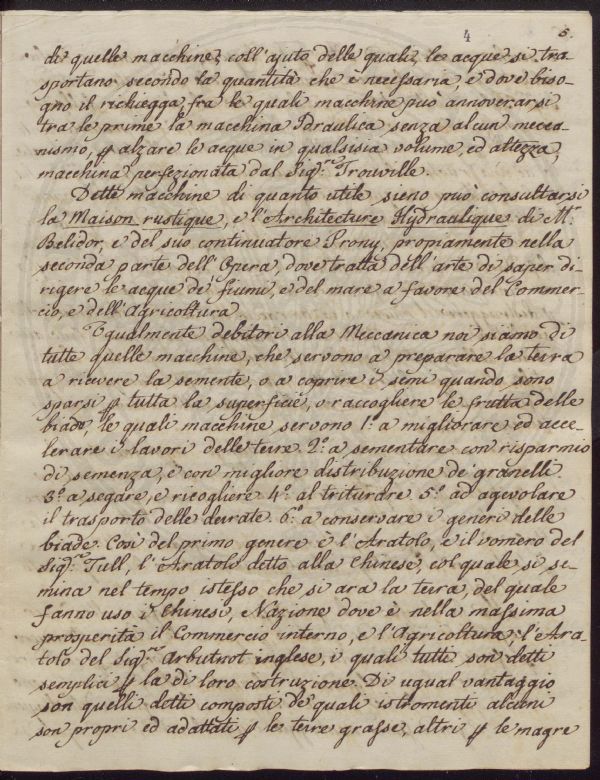 4 5.
di quelle macchine, coll'ajuto delle quali, le acque si tra-
sportano secondo la quantità che è necessaria, e dove biso-
gno il richiegga, fra le quali macchine può annoverarsi
tra le prime la macchina Idraulica senza alcun mecca-
nismo, ꝑ alzare le acque in qualsisia volume, ed altezza,
macchina perfezionata dal Sig.re Trouville.
Dette macchine di quanto utile sieno può consultarsi
la Maison rustique, e l'Architecture Hydraulique di M.r
Belidor, e del suo continuatore Prony, propiamente nella
seconda parte dell'Opera, dove tratta dell'arte di saper di-
rigere le acque de' fiumi, e del mare a favore del Commer-
cio, e dell'Agricoltura.
Egualmente debitori alla Meccanica noi siamo di
tutte quelle macchine, che servono a preparare la terra
a ricevere la semente, o a coprire i semi quando sono
sparsi ꝑ tutta la superficie, o raccogliere le frutta delle
biade, le quali macchine servono 1.º a migliorare ed acce-
lerare i lavori delle terre 2.º a sementare con risparmio
di semenza, e con migliore distribuzione de' granelli
3.º a segare, e ricogliere 4.º al triturare 5.º ad agevolare
il trasporto delle derrate 6.º a conservare i generi delle
biade. Così del primo genere è l'Aratolo, e il vomero del
Sig.re Tull, l'Aratolo detto alla Chinese, col quale si se-
mina nel tempo istesso che si ara la terra, del quale
fanno uso i Chinesi, Nazione dove è nella massima
prosperità il Commercio interno, e l'Agricoltura; l'Ara-
tolo del Sig.re Arbutnot inglese, i quali tutti son detti
semplici ꝑ la di loro costruzione. Di ugual vantaggio
son quelli detti composti de' quali istromenti alcuni
son propri ed adattati ꝑ le terre grasse, altri ꝑ le magre